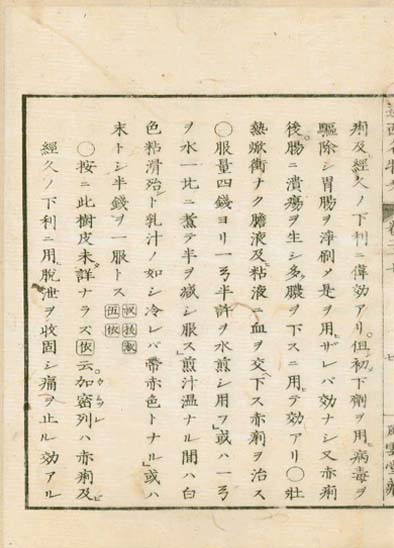 痢及經久ノ下利ニ偉効アリ但初下劑ヲ用病毒ヲ
驅除シ胃腸ヲ淨刷ノ是ヲ用ザレバ効ナシ又赤痢
後腸ニ潰瘍ヲ生シ多膿ヲ下スニ用テ効アリ〇壯
熱焮衝ナク膽液及粘液ニ血ヲ交下ス赤痢ヲ治ス
〇服量四錢ヨリ一弓半許ヲ水煎シ用フ」或ハ一弓
ヲ水一匕ニ煮テ半ヲ減シ服ス」煎汁温ナル間ハ白
色粘滑殆ト乳汁ノ如シ冷レバ帶赤色トナル」或ハ
末トシ半錢ヲ一服トス
〇按ニ此樹皮未詳ナラス依云加密列ハ赤痢及
經久ノ下利ニ用脱泄ヲ收固シ痛ヲ止ル効アル